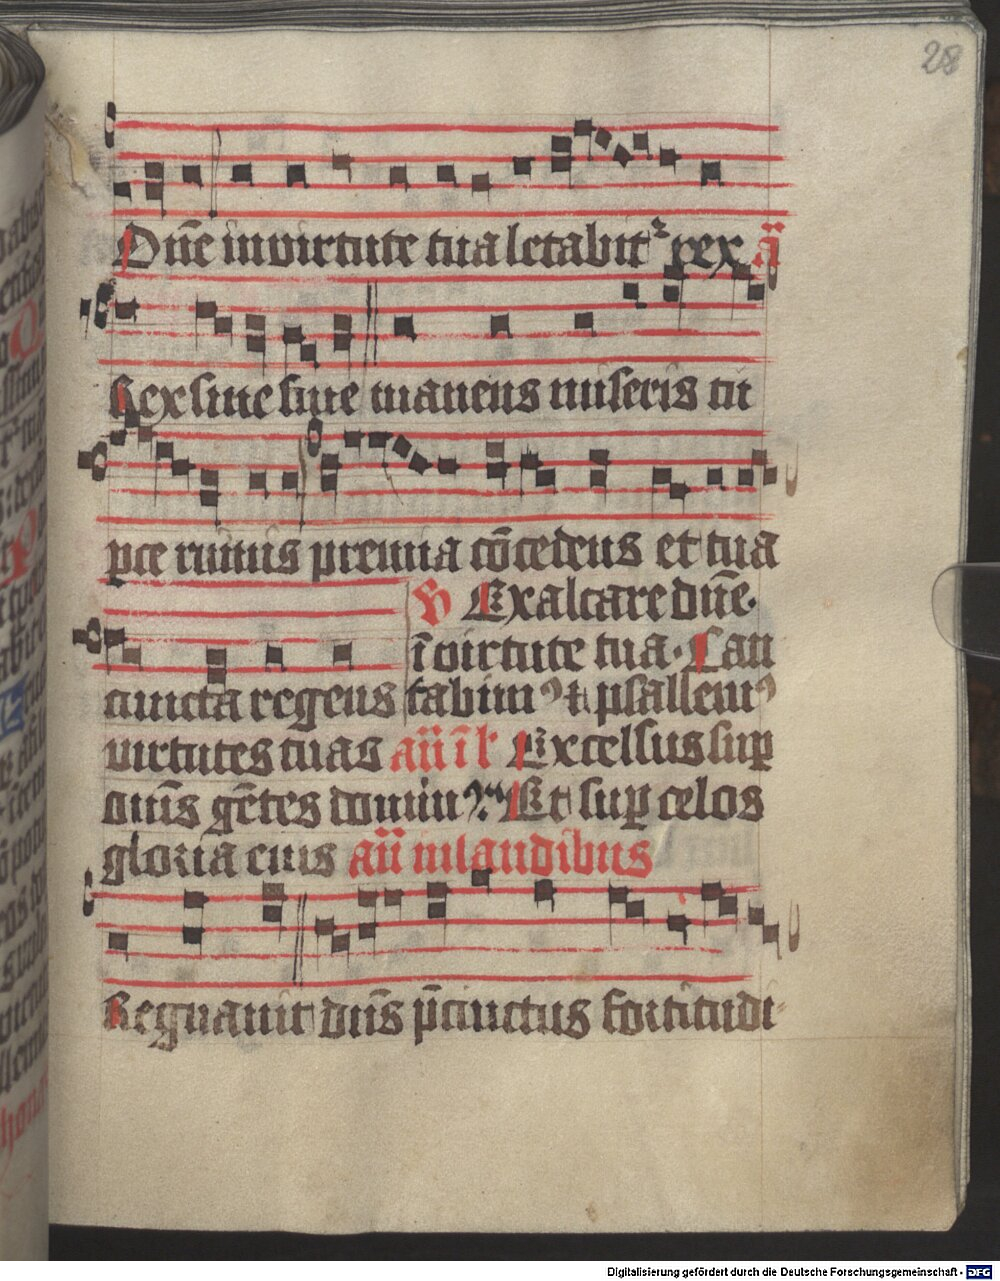 28
Dn̄e in virtute tua letabit᷑ rex a᷑
Rex sine fine manens miseris tu
pce nimis premia cōcedens et tua
V Exaltare dn̄e·
ī virtute tua· Can
cuncta regens tabimꝰ ⁊ psallemꝰ
virtutes tuas an̄ ī l᷑ Excelsus suꝑ
om̄s gētes dominꝰ Et suꝑ celos
gloria eius an̄ in laudibus
Regnauit dn̄s p̄cinctus fortitudi
Digitalisierung gefördert durch die Deutsche Forschungsgemeinschaft - DFG